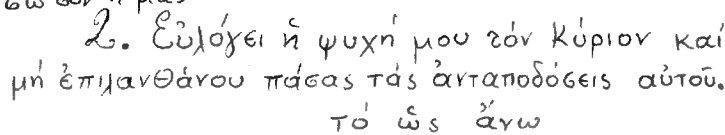 2. Εὐλόγει ἡ ψυχή μου τόν Κύριον καί
μή ἐπιλανθάνου πάσας τάς ἀνταποδόσεις αὐτοῦ.
τό ὡς ἄνω